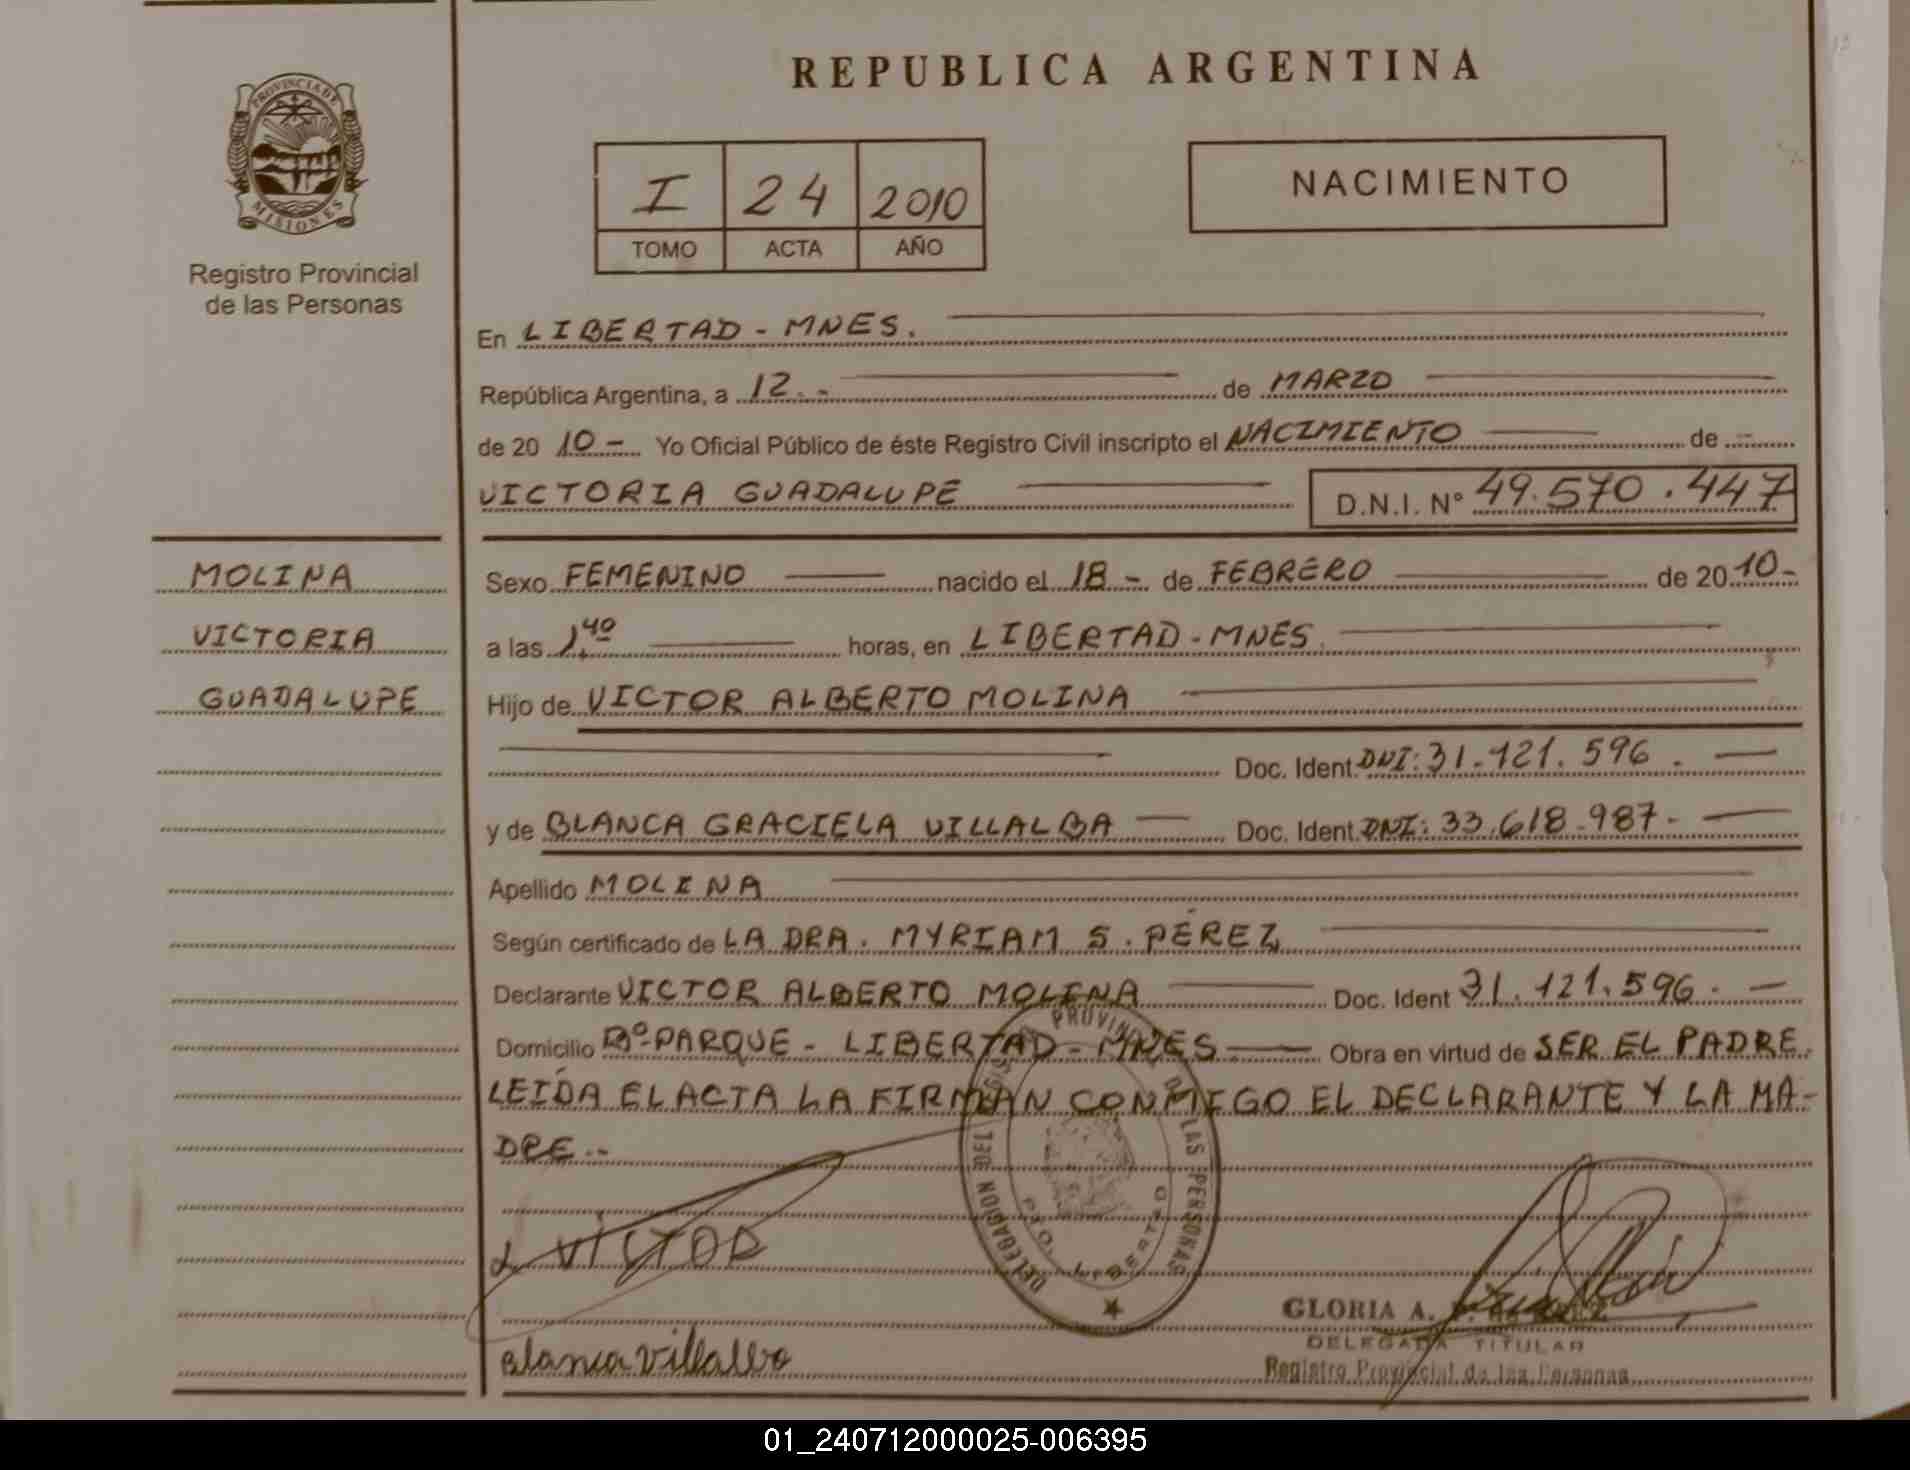 REPUBLICA ARGENTINA
PROVINCIA DE
MISIONES
Registro Provincial
de las Personas
I 24 2010
TOMO ACTA AÑO
NACIMIENTO
En LIBERTAD - MNES.
República Argentina, a 12.- de MARZO
de 20 10- Yo Oficial Público de éste Registro Civil inscripto el NACIMIENTO de -
VICTORIA GUADALUPE D.N.I. Nº 49.570.447
MOLINA
VICTORIA
GUADALUPE
Sexo FEMENINO nacido el 18 - de FEBRERO de 20 10-
a las 1.40 horas, en LIBERTAD - MNES.
Hijo de VICTOR ALBERTO MOLINA
Doc. Ident. DNI: 31.121.596. -
y de BLANCA GRACIELA VILLALBA - Doc. Ident. DNI: 33.618.987- -
Apellido MOLINA
Según certificado de LA DRA. MYRIAM S. PÉREZ
Declarante VICTOR ALBERTO MOLINA Doc. Ident 31.121.596. -
Domicilio Bº PARQUE - LIBERTAD - MNES - Obra en virtud de SER EL PADRE.
LEÍDA EL ACTA LA FIRMAN CONMIGO EL DECLARANTE Y LA MA-
DRE.-
DELEGACION DEL REGISTRO PROVINCIAL DE LAS PERSONAS
PTO. LIBERTAD
VICTOR
Blanca Villalba
GLORIA A.
DELEGADA TITULAR
Registro Provincial de las Personas
01_240712000025-006395